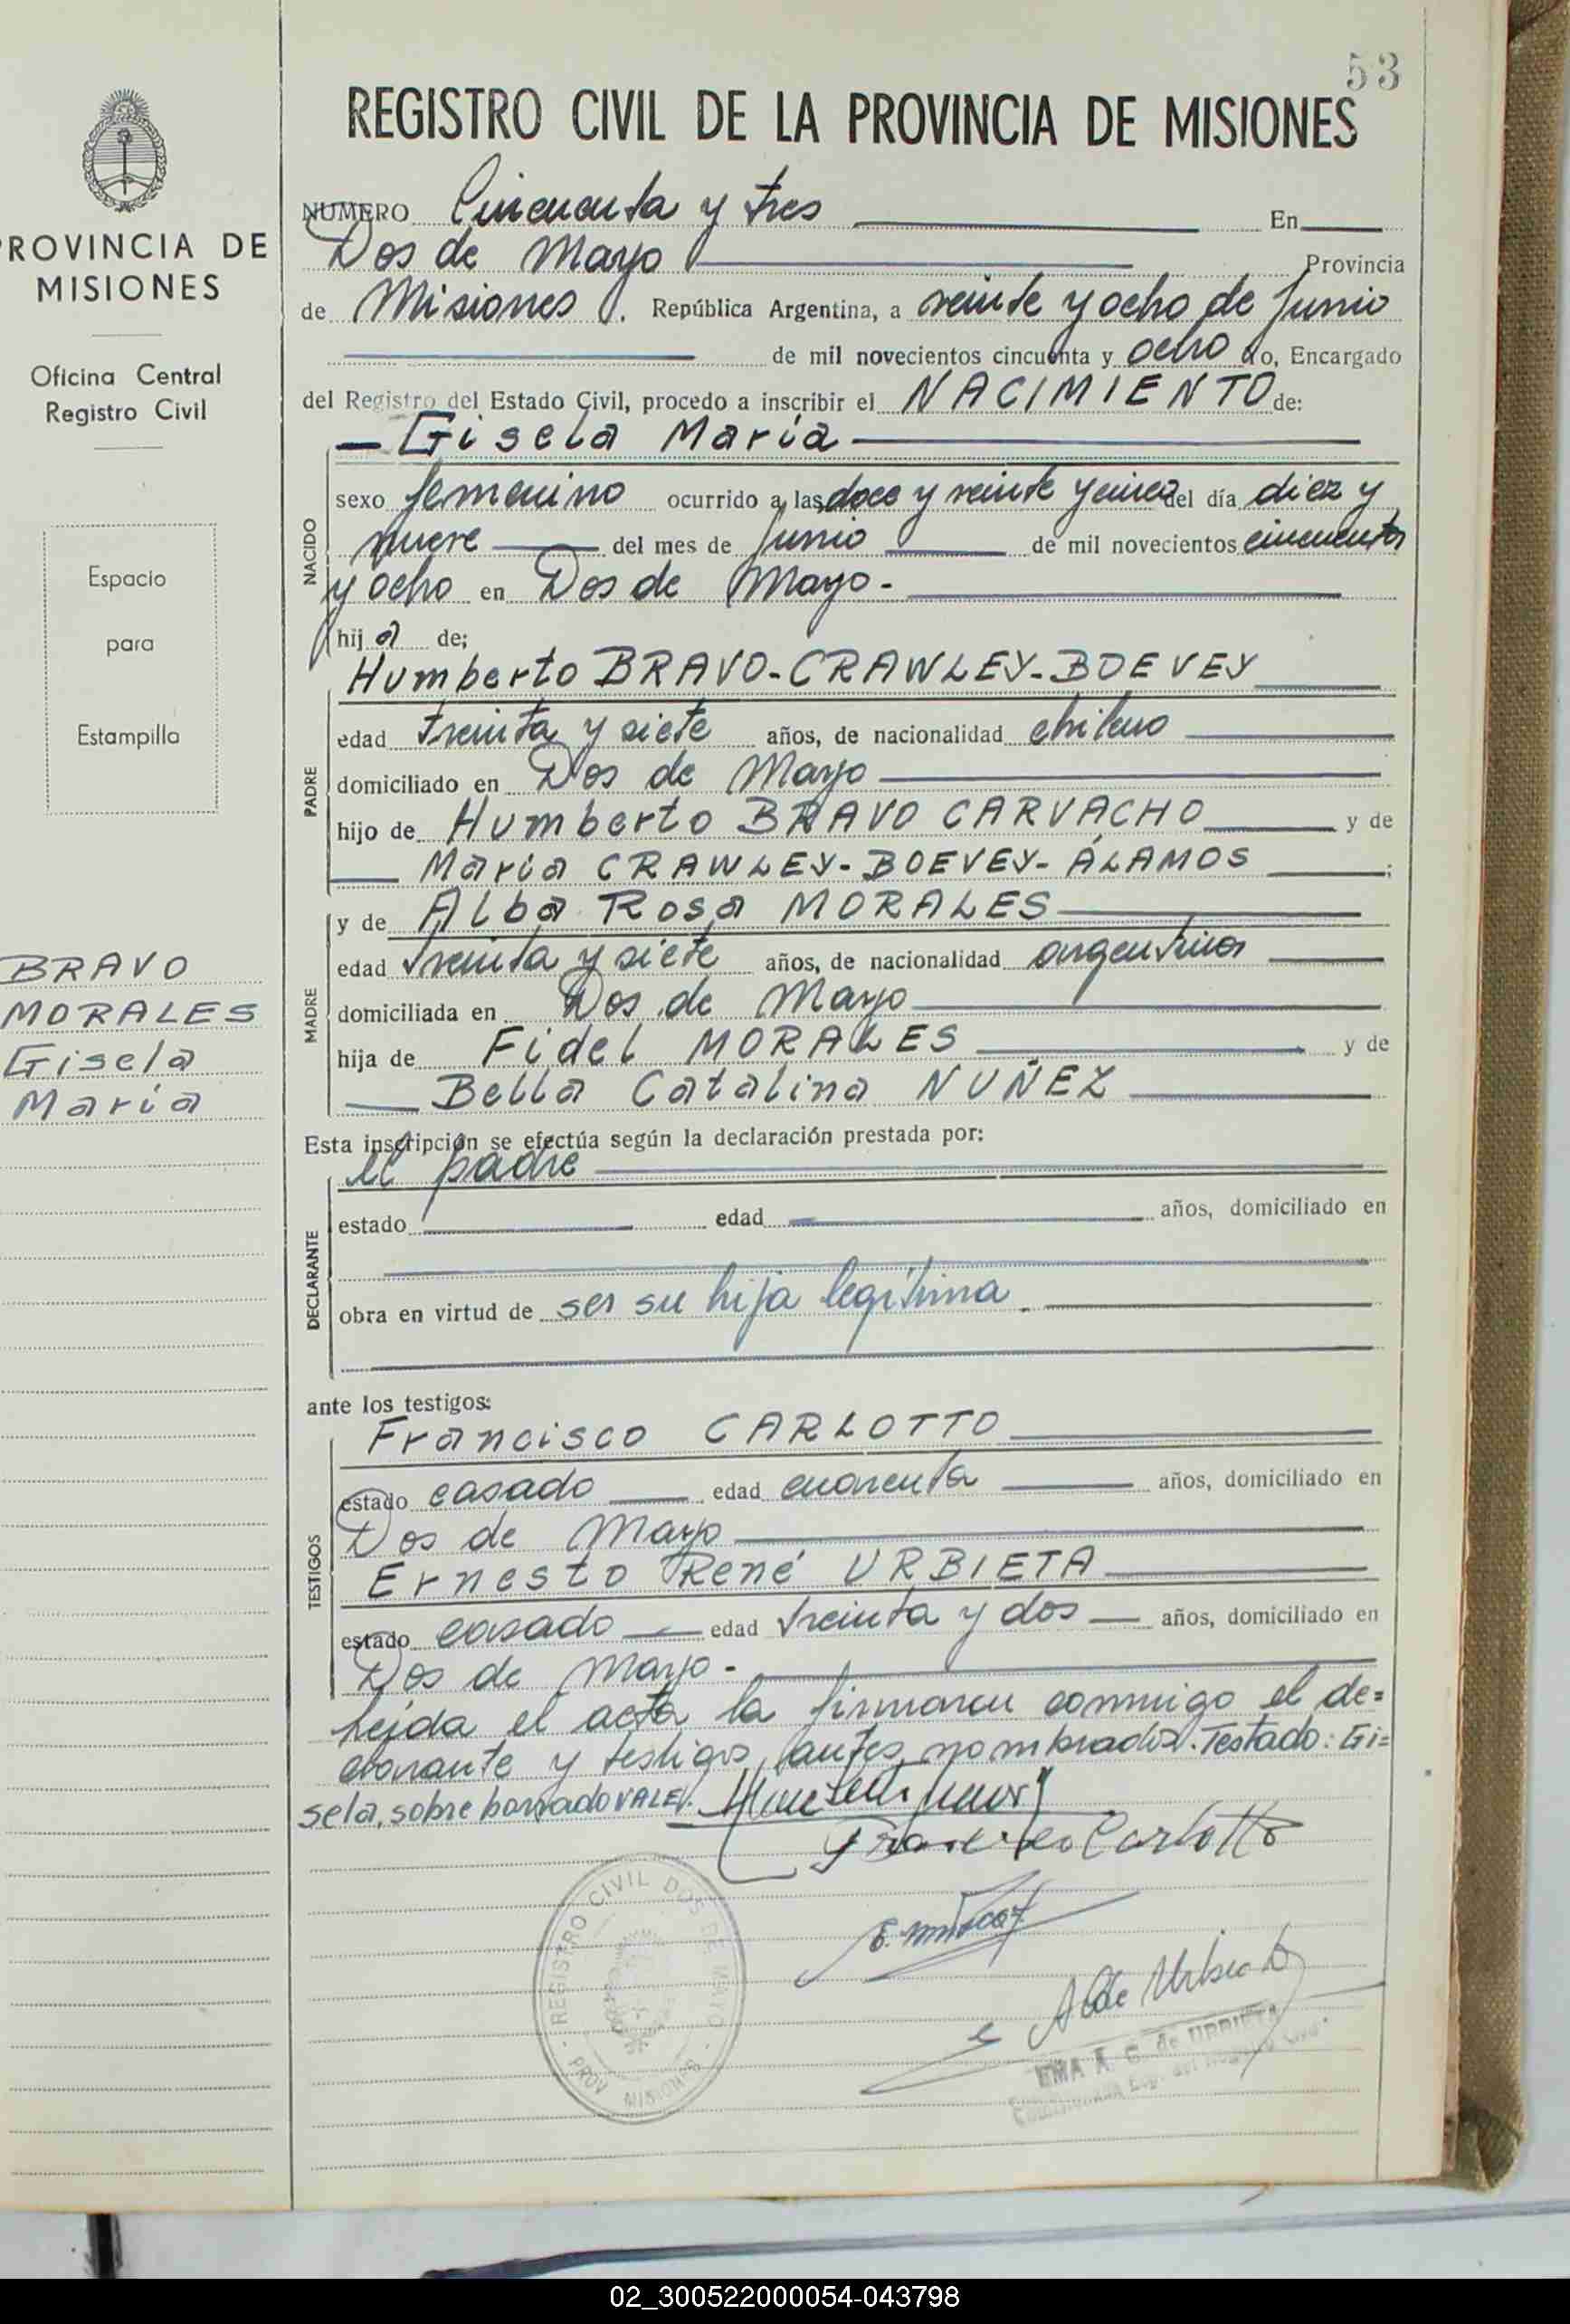 53
REGISTRO CIVIL DE LA PROVINCIA DE MISIONES
PROVINCIA DE
MISIONES
Oficina Central
Registro Civil
Espacio
para
Estampilla
BRAVO
MORALES
Gisela
María
NUMERO Cincuenta y tres En
Dos de Mayo Provincia
de Misiones. República Argentina, a veinte y ocho de Junio
de mil novecientos cincuenta y ocho yo, Encargado
del Registro del Estado Civil, procedo a inscribir el NACIMIENTO de:
Gisela María
NACIDO
sexo femenino ocurrido a las doce y veinte y cinco del día diez y
nueve del mes de Junio de mil novecientos cincuenta
y ocho en Dos de Mayo.-
hija de;
Humberto BRAVO-CRAWLEY-BOEVEY
PADRE
edad treinta y siete años, de nacionalidad chileno
domiciliado en Dos de Mayo
hijo de Humberto BRAVO CARVACHO y de
María CRAWLEY-BOEVEY-ÁLAMOS;
y de Alba Rosa MORALES
MADRE
edad treinta y siete años, de nacionalidad argentina
domiciliada en Dos de Mayo
hija de Fidel MORALES y de
Bella Catalina NUÑEZ
Esta inscripción se efectúa según la declaración prestada por:
el padre
DECLARANTE
estado edad años, domiciliado en
obra en virtud de ser su hija legítima.
ante los testigos:
Francisco CARLOTTO
TESTIGOS
estado casado edad cuarenta años, domiciliado en
Dos de Mayo
Ernesto René URBIETA
estado casado edad treinta y dos años, domiciliado en
Dos de Mayo.-
Leída el acta la firmaron conmigo el de=
clarante y testigos antes nombrados. Testado: Gi=
sela, sobre borrado VALE.
Francisco Carlotto
REGISTRO CIVIL DOS DE MAYO
PROV. MISIONES
A G de Urbieta
EMA A. G. de URBIETA
02_300522000054-043798